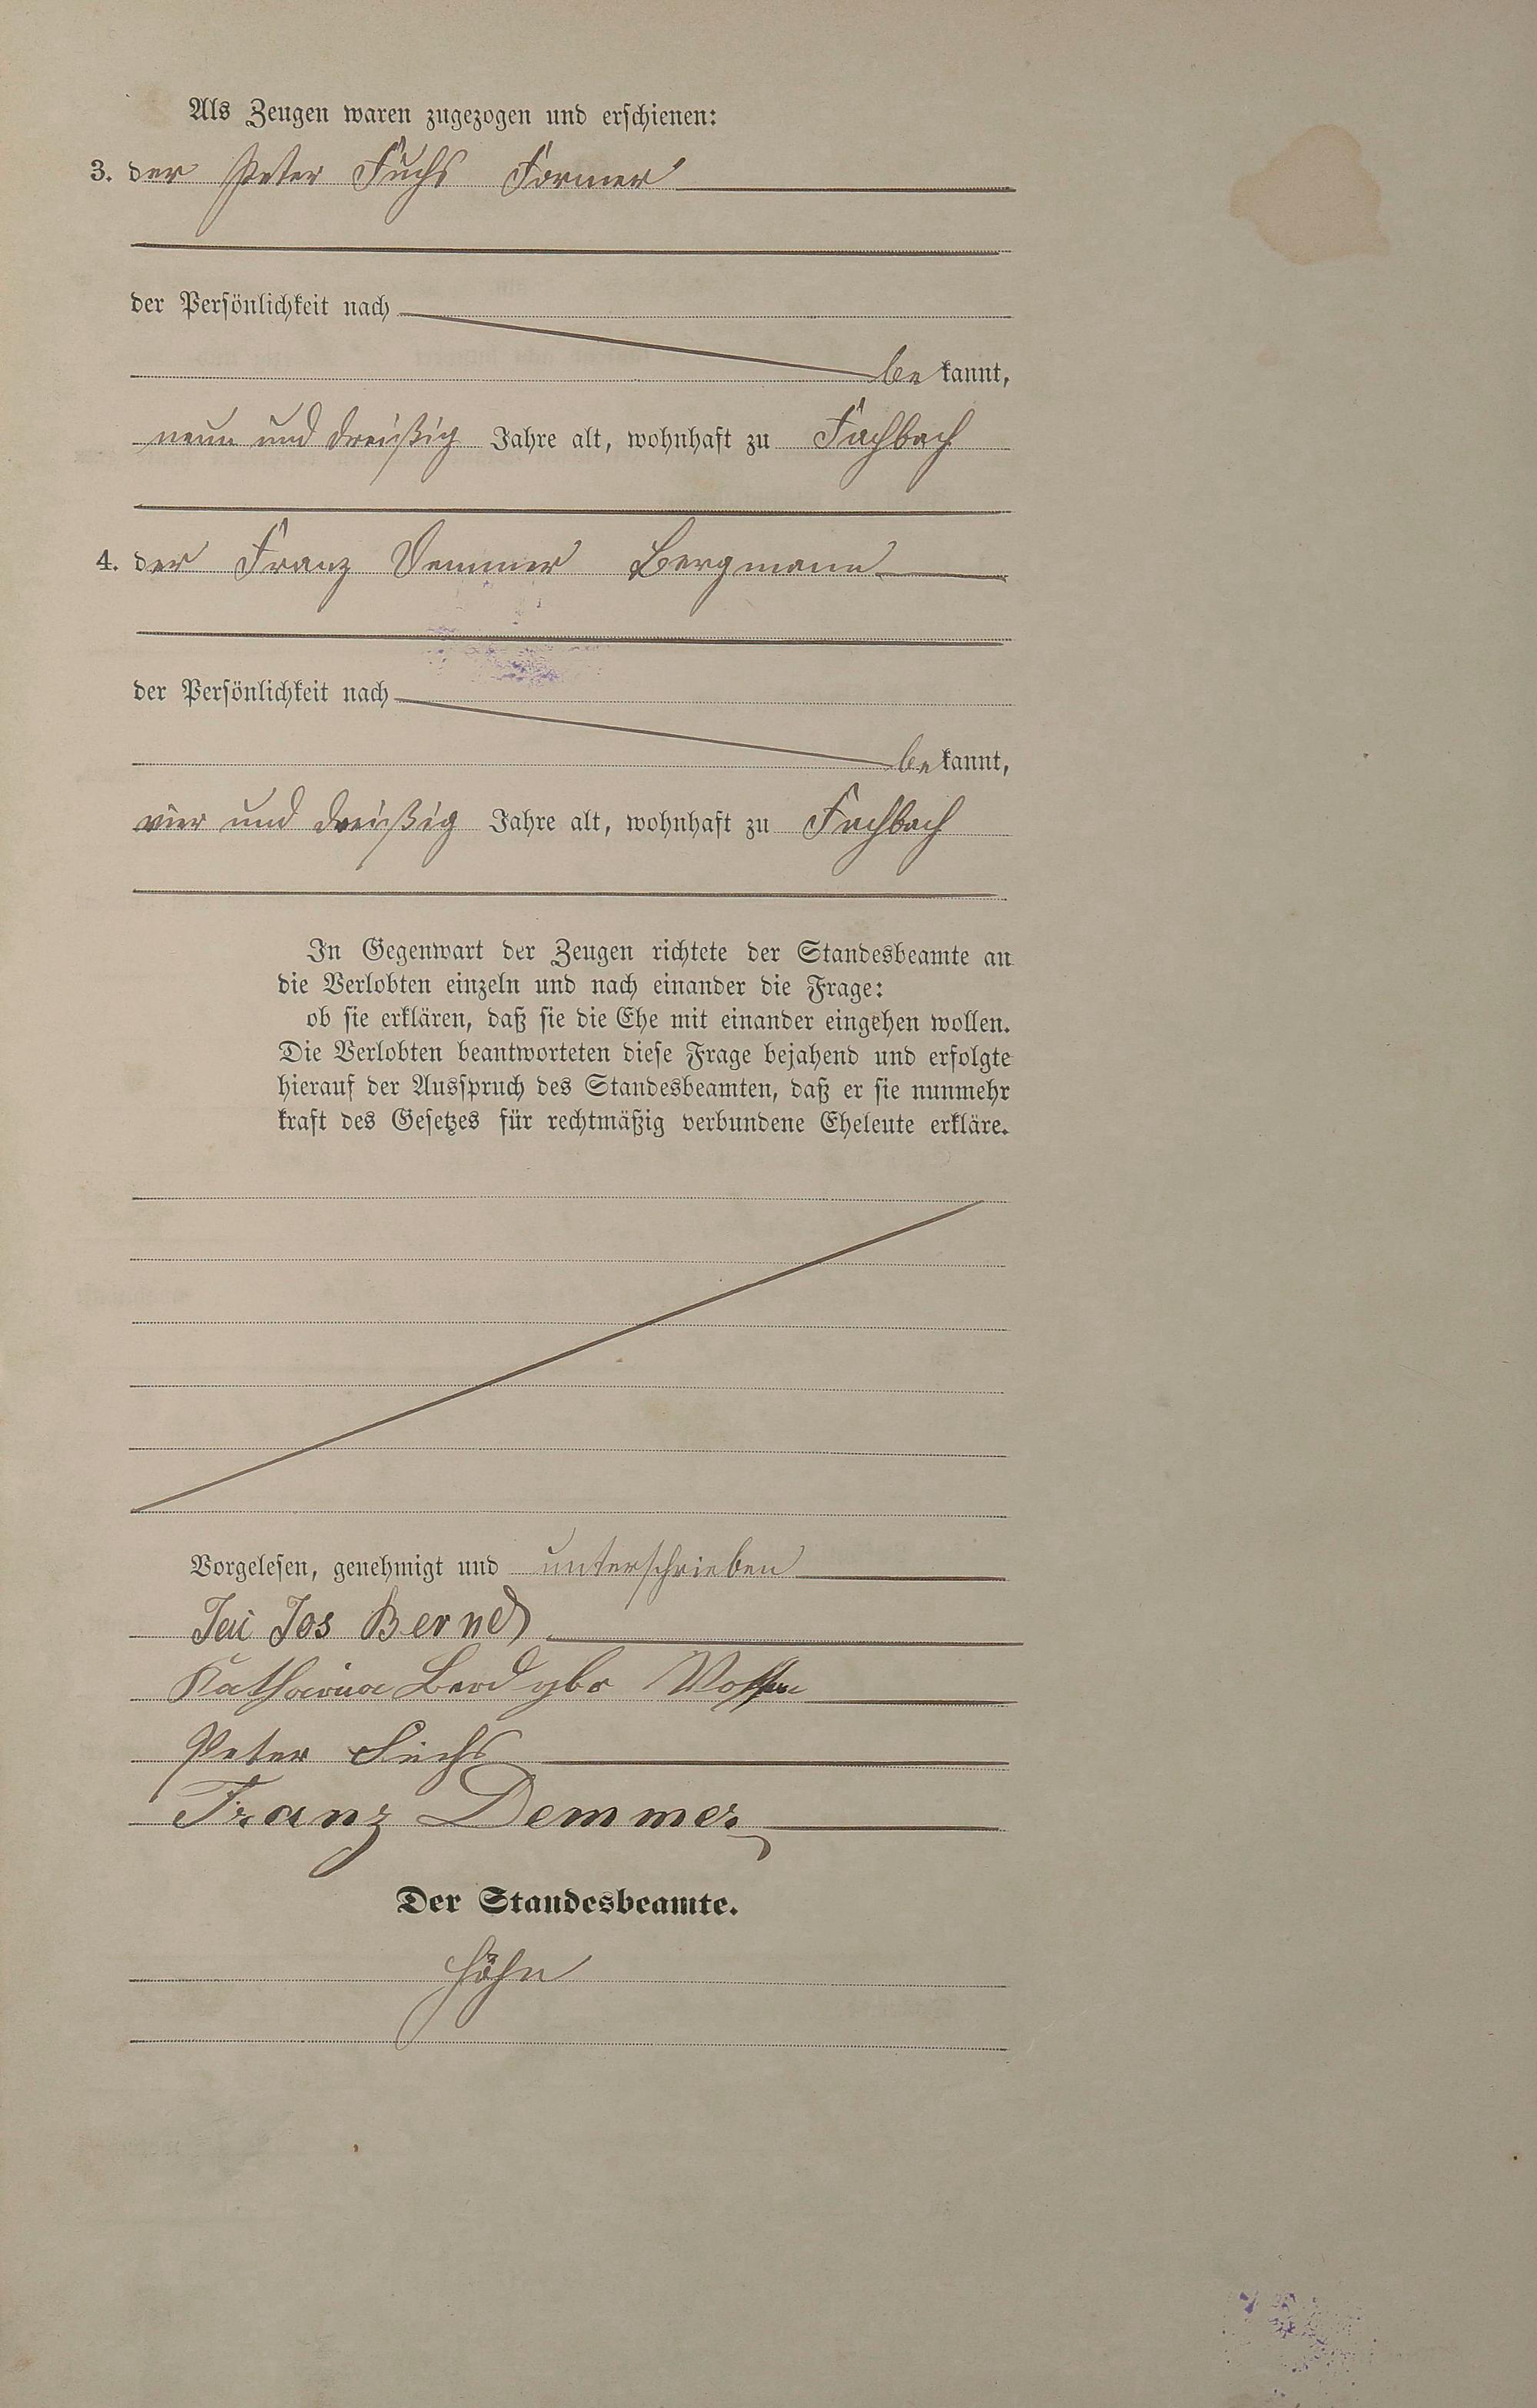 Als Zeugen waren zugezogen und erschienen:
3. der Peter Fuchs Former
der Persönlichkeit nach
be kannt,
neun und dreißig Jahre alt, wohnhaft zu Fachbach
4. der Franz Demmer Bergmann
der Persönlichkeit nach
be kannt,
vier und dreißig Jahre alt, wohnhaft zu Fachbach
In Gegenwart der Zeugen richtete der Standesbeamte an
die Verlobten einzeln und nach einander die Frage:
ob sie erklären, daß sie die Ehe mit einander eingehen wollen.
Die Verlobten beantworteten diese Frage bejahend und erfolgte
hierauf der Ausspruch des Standesbeamten, daß er sie nunmehr
kraft des Gesetzes für rechtmäßig verbundene Eheleute erkläre.
Vorgelesen, genehmigt und unterschrieben
Jos Bernd
Katharina gbr
Peter Fuchs
Franz Demmer
Der Standesbeamte.
Höhn